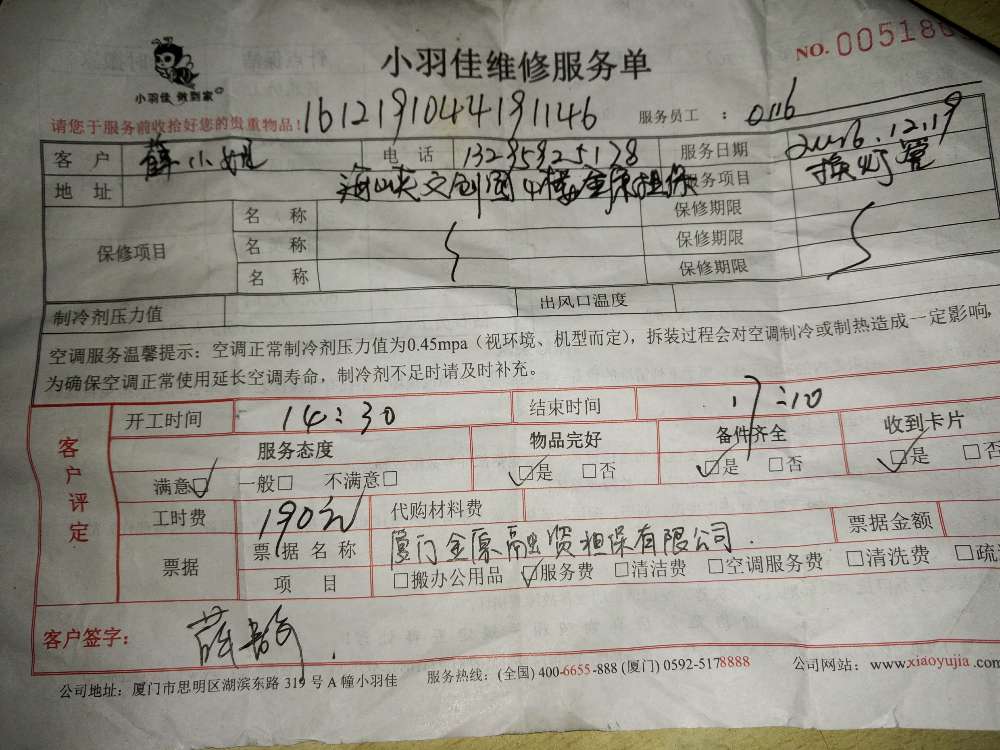 小羽佳 做到家
小羽佳维修服务单
NO. 005186
请您于服务前收拾好您的贵重物品！ 1612191044191146 服务员工 ： 0116
客 户 薛小姐 电 话 服务日期 2016.12.19
地 址 海峡文创园4楼金原担保 服务项目 换灯管
保修项目 名 称 保修期限
名 称 保修期限
名 称 保修期限
制冷剂压力值 出风口温度
空调服务温馨提示：空调正常制冷剂压力值为0.45mpa（视环境、机型而定），拆装过程会对空调制冷或制热造成一定影响，
为确保空调正常使用延长空调寿命，制冷剂不足时请及时补充。
客户评定
开工时间 14:30 结束时间 17:10
服务态度 物品完好 备件齐全 收到卡片
满意☑ 一般□ 不满意□ ☑是 □否 ☑是 □否 ☑是 □否
工时费 190元 代购材料费
票据 票据名称 厦门金原融资担保有限公司. 票据金额
项 目 □搬办公用品 ☑服务费 □清洁费 □空调服务费 □清洗费 □疏
客户签字：
公司地址：厦门市思明区湖滨东路 319 号 A 幢小羽佳 服务热线：(全国) 400-6655-888 (厦门) 0592-5178888 公司网站：www.xiaoyujia.com